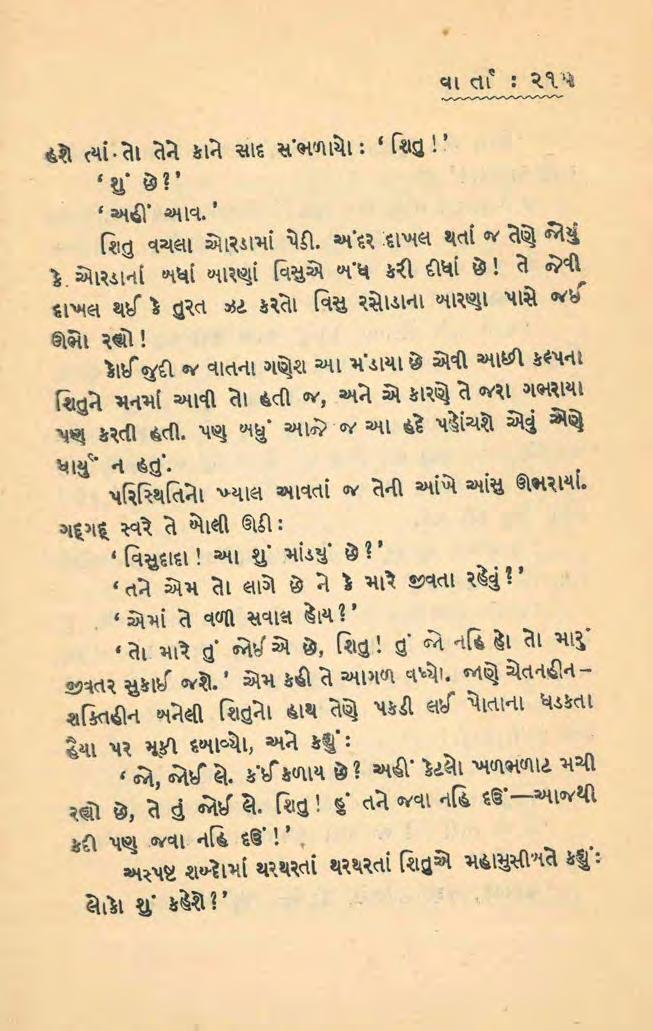 વા ર્તા : ૨૧૫
હશે ત્યાં તો તેને કાને સાદ સંભળાયો : ‘ શિતુ ! ’
‘ શું છે ? ’
‘ અહીં આવ. ’
શિતુ વચલા ઓરડામાં પેઠી. અંદર દાખલ થતાં જ તેણે જોયું
કે ઓરડાનાં બધાં બારણાં વિસુએ બંધ કરી દીધાં છે ! તે જેવી
દાખલ થઈ કે તુરત ઝટ કરતો વિસુ રસોડાના બારણા પાસે જઈ
ઊભો રહ્યો !
કોઈ જુદી જ વાતના ગણેશ આ મંડાયા છે એવી આછી કલ્પના
શિતુને મનમાં આવી તો હતી જ, અને એ કારણે તે જરા ગભરાયા
પણ કરતી હતી. પણ બધું આજે જ આ હદે પહોંચશે એવું એણે
ધાર્યું ન હતું.
પરિસ્થિતિનો ખ્યાલ આવતાં જ તેની આંખે આંસુ ઊભરાયાં.
ગદ્ગદ્ સ્વરે તે બોલી ઊઠી :
‘ વિસુદાદા ! આ શું માંડ્યું છે ? ’
‘ તને એમ તો લાગે છે ને કે મારે જીવતા રહેવું ? ’
‘ એમાં તે વળી સવાલ હોય ? ’
‘ તો મારે તું જોઈએ છે, શિતુ ! તું જો નહિ હો તો મારું
જીવતર સુકાઈ જશે. ’ એમ કહી તે આગળ વધ્યો. જાણે ચેતનહીન–
શક્તિહીન બનેલી શિતુનો હાથ તેણે પકડી લઈ પોતાના ધડકતા
હૈયા પર મૂકી દબાવ્યો, અને કહ્યું :
‘ જો, જોઈ લે. કંઈ કળાય છે ? અહીં કેટલો ખળભળાટ મચી
રહ્યો છે, તે તું જોઈ લે. શિતુ ! હું તને જવા નહિ દઉં—આજથી
કદી પણ જવા નહિ દઉં ! ’
અસ્પષ્ટ શબ્દોમાં થરથરતાં થરથરતાં શિતુએ મહામુસીબતે કહ્યું :
લોકો શું કહેશે ? ’